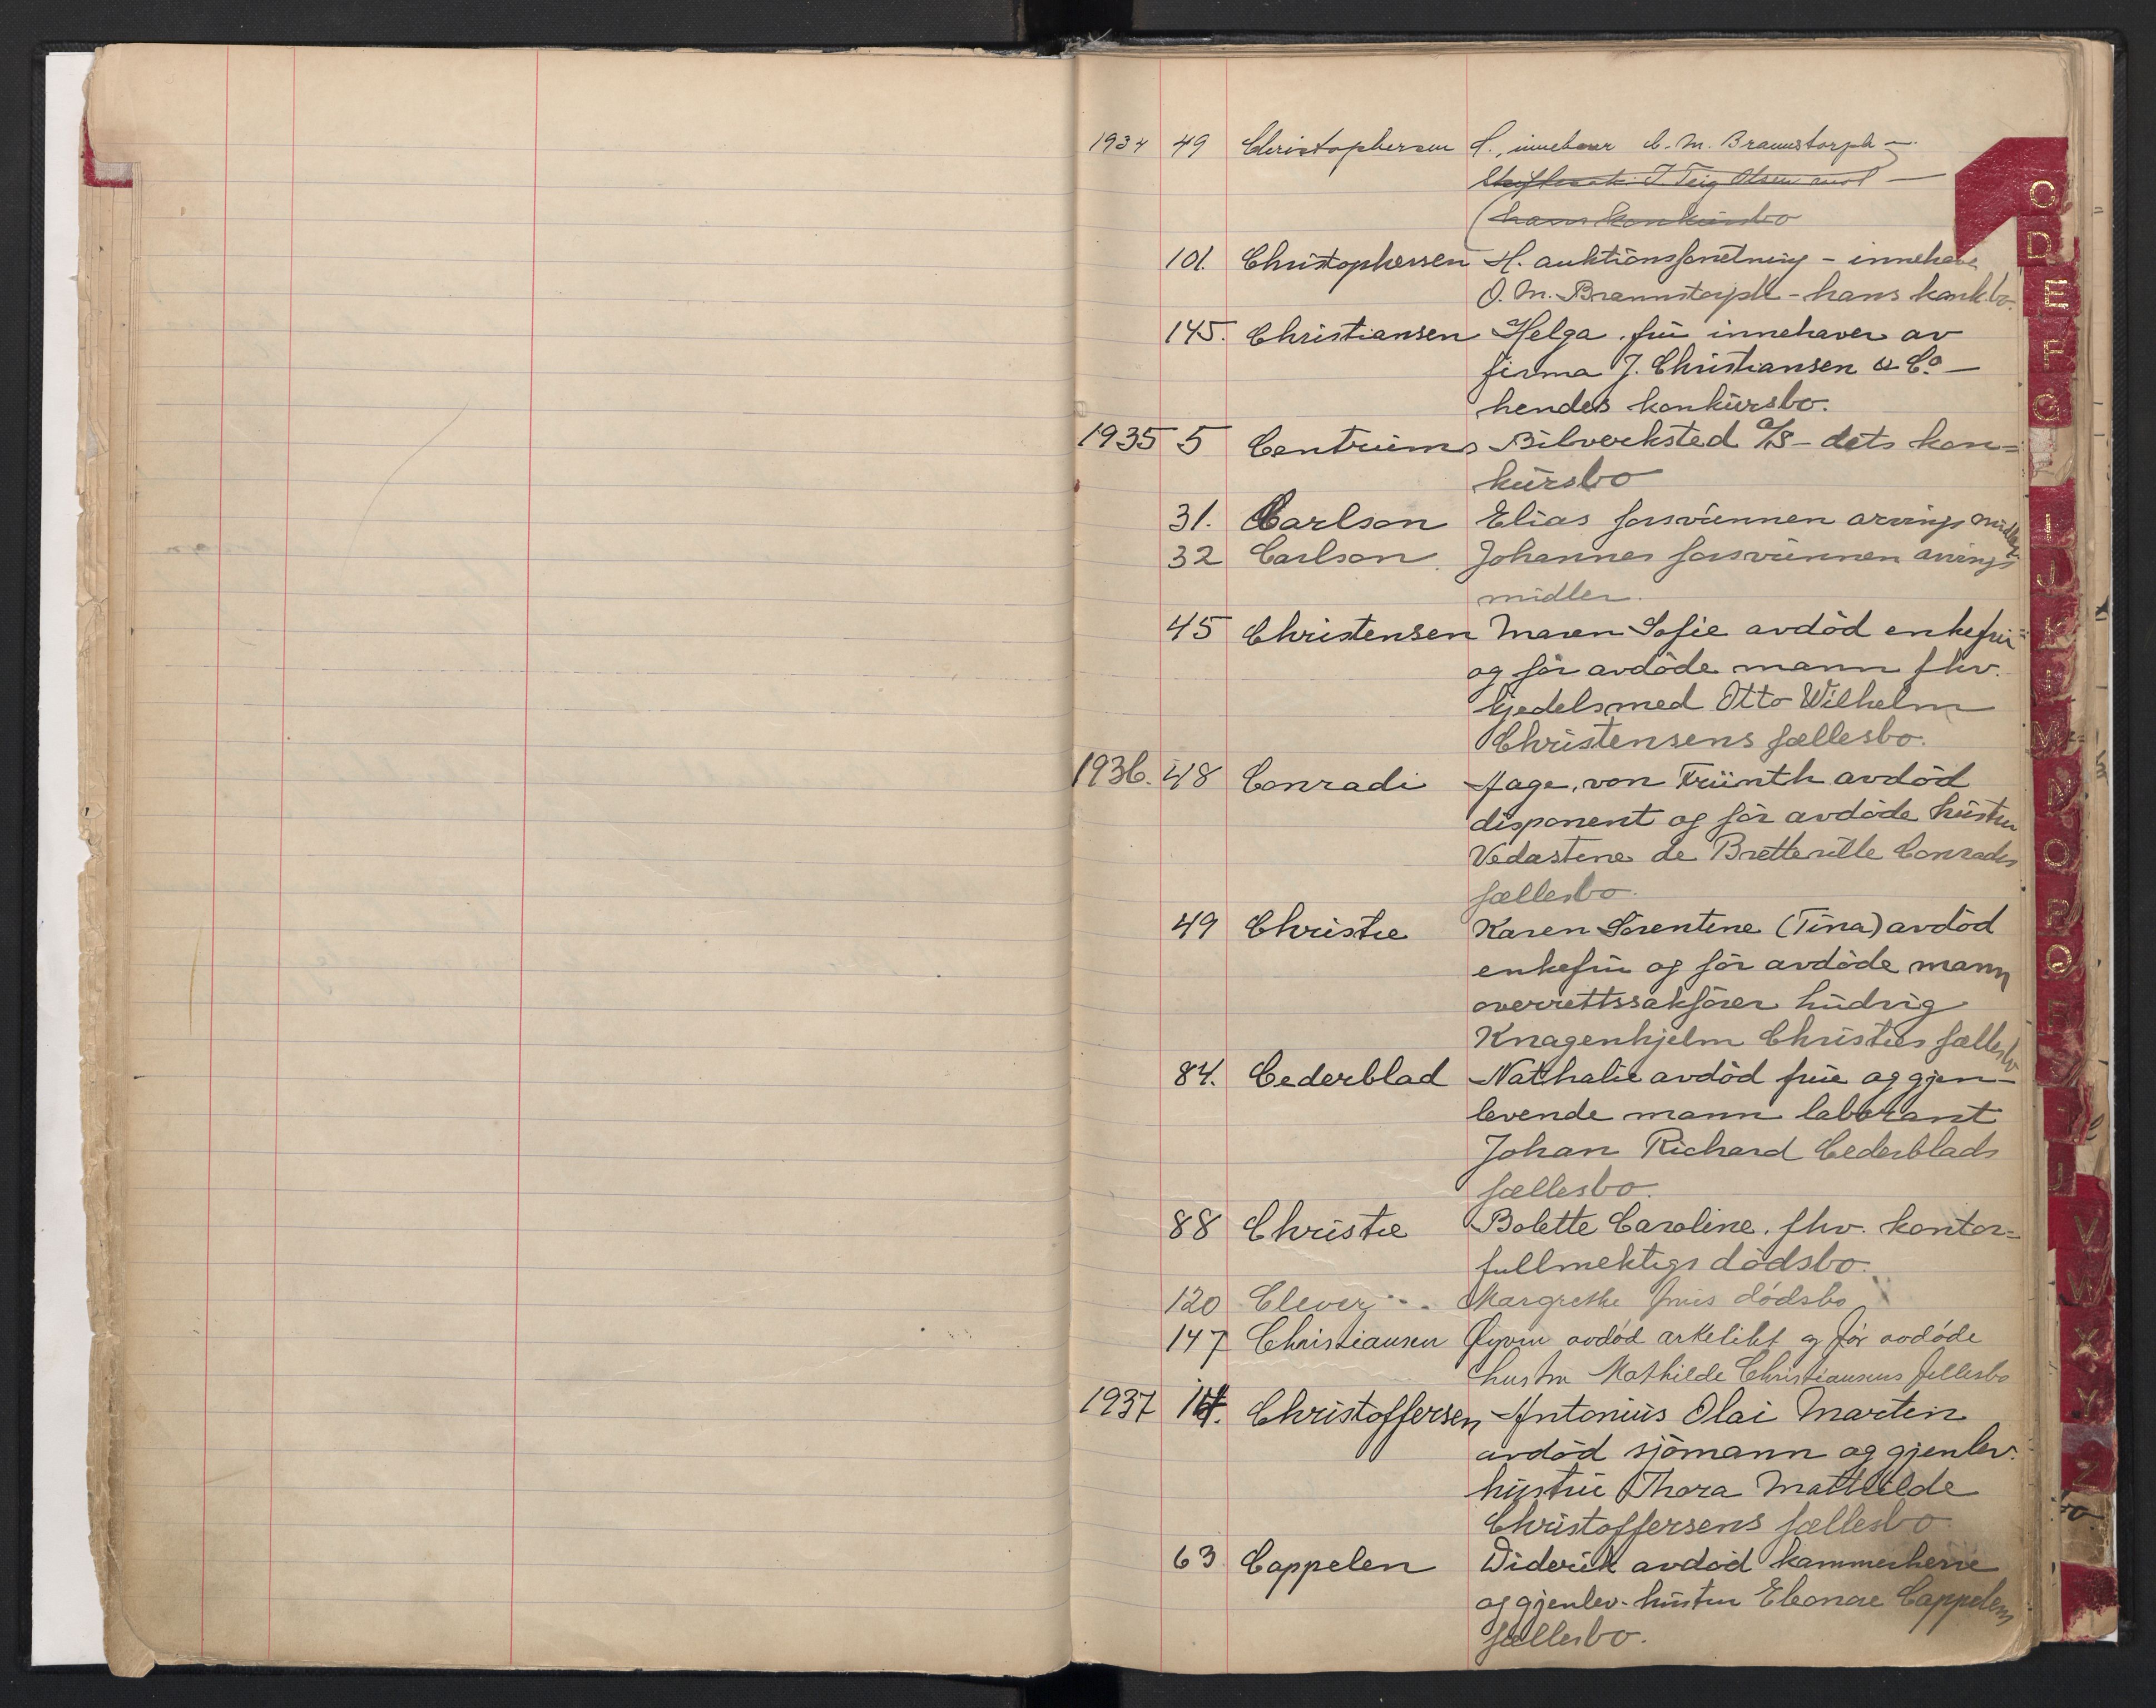 1934 49 Christophersen H., innehaver O. M. Brannstorph —
Skiftesak. T. Teig Olsen mot —
(hans konkursbo
101. Christophersen H. auktionsforretning - innehaver
O. M. Brannstorph - hans konk.bo.
145. Christiansen Helga, frü innehaver av
firma J. Christiansen & Co —
hendes konkürsbo.
1935 5 Centrüms Bilverksted A/S - dets kon=
kürsbo
31. Carlson Elias forsvünnen arvings midler
32 Carlson Johannes forsvünnen arvings
midler.
45 Christensen Maren Sofie avdöd enkefrü
og för avdöde mann fhv.
kjedelsmed Otto Wilhelm
Christensens fællesbo.
1936. 48 Conradi Aage, von avdöd
disponent og för avdöde hüstru
Vedastine de Bretteville Conradis
fællesbo.
49 Christie Karen Sörentine (Tina) avdöd
enkefrü og för avdöde mann
overrettssakförer
Knagenhjelm Christies fællesbo
84. Cederblad Nathalie avdöd früe og gjen-
levende mann laborant
Johan Richard Cederblads
fællesbo.
88 Christie Bolette Caroline, fhv. kontor=
fullmektigs dödsbo.
120 Clever Margrethe frues dödsbo
147 Christiansen Øyvin avdöd arkitekt og för avdöde
hustru Mathilde Christiansens fellesbo
1937 14. Christoffersen Antonius Olai Martin
avdöd sjömann og gjenlev.
hüstrü Thora Mathilde
Christoffersens fællesbo
63 Cappelen Diderik avdöd kammerherre
og gjenlev. hüstru Eleonore Cappelens
fællesbo.
C
D
E
F
G
I
J
K
M
N
O
P
Q
V
W
X
Y
Z